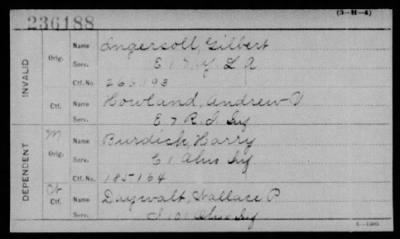 (3-H-4)
236188
INVALID
Orig.
Name Ingersoll, Gilbert
Serv. E 1 N.Y. L A
Ctf. No. 266,193
Ctf.
Name Howland, Andrew V
Serv. E 7 R. I. Inf
DEPENDENT
M
Orig.
Name Burdick, Harry
Serv. E 1 Ohio Inf
Ctf. No. 185164
Ctf.
Name Daywalt, Wallace P.
Serv. I 101 Ohio Inf